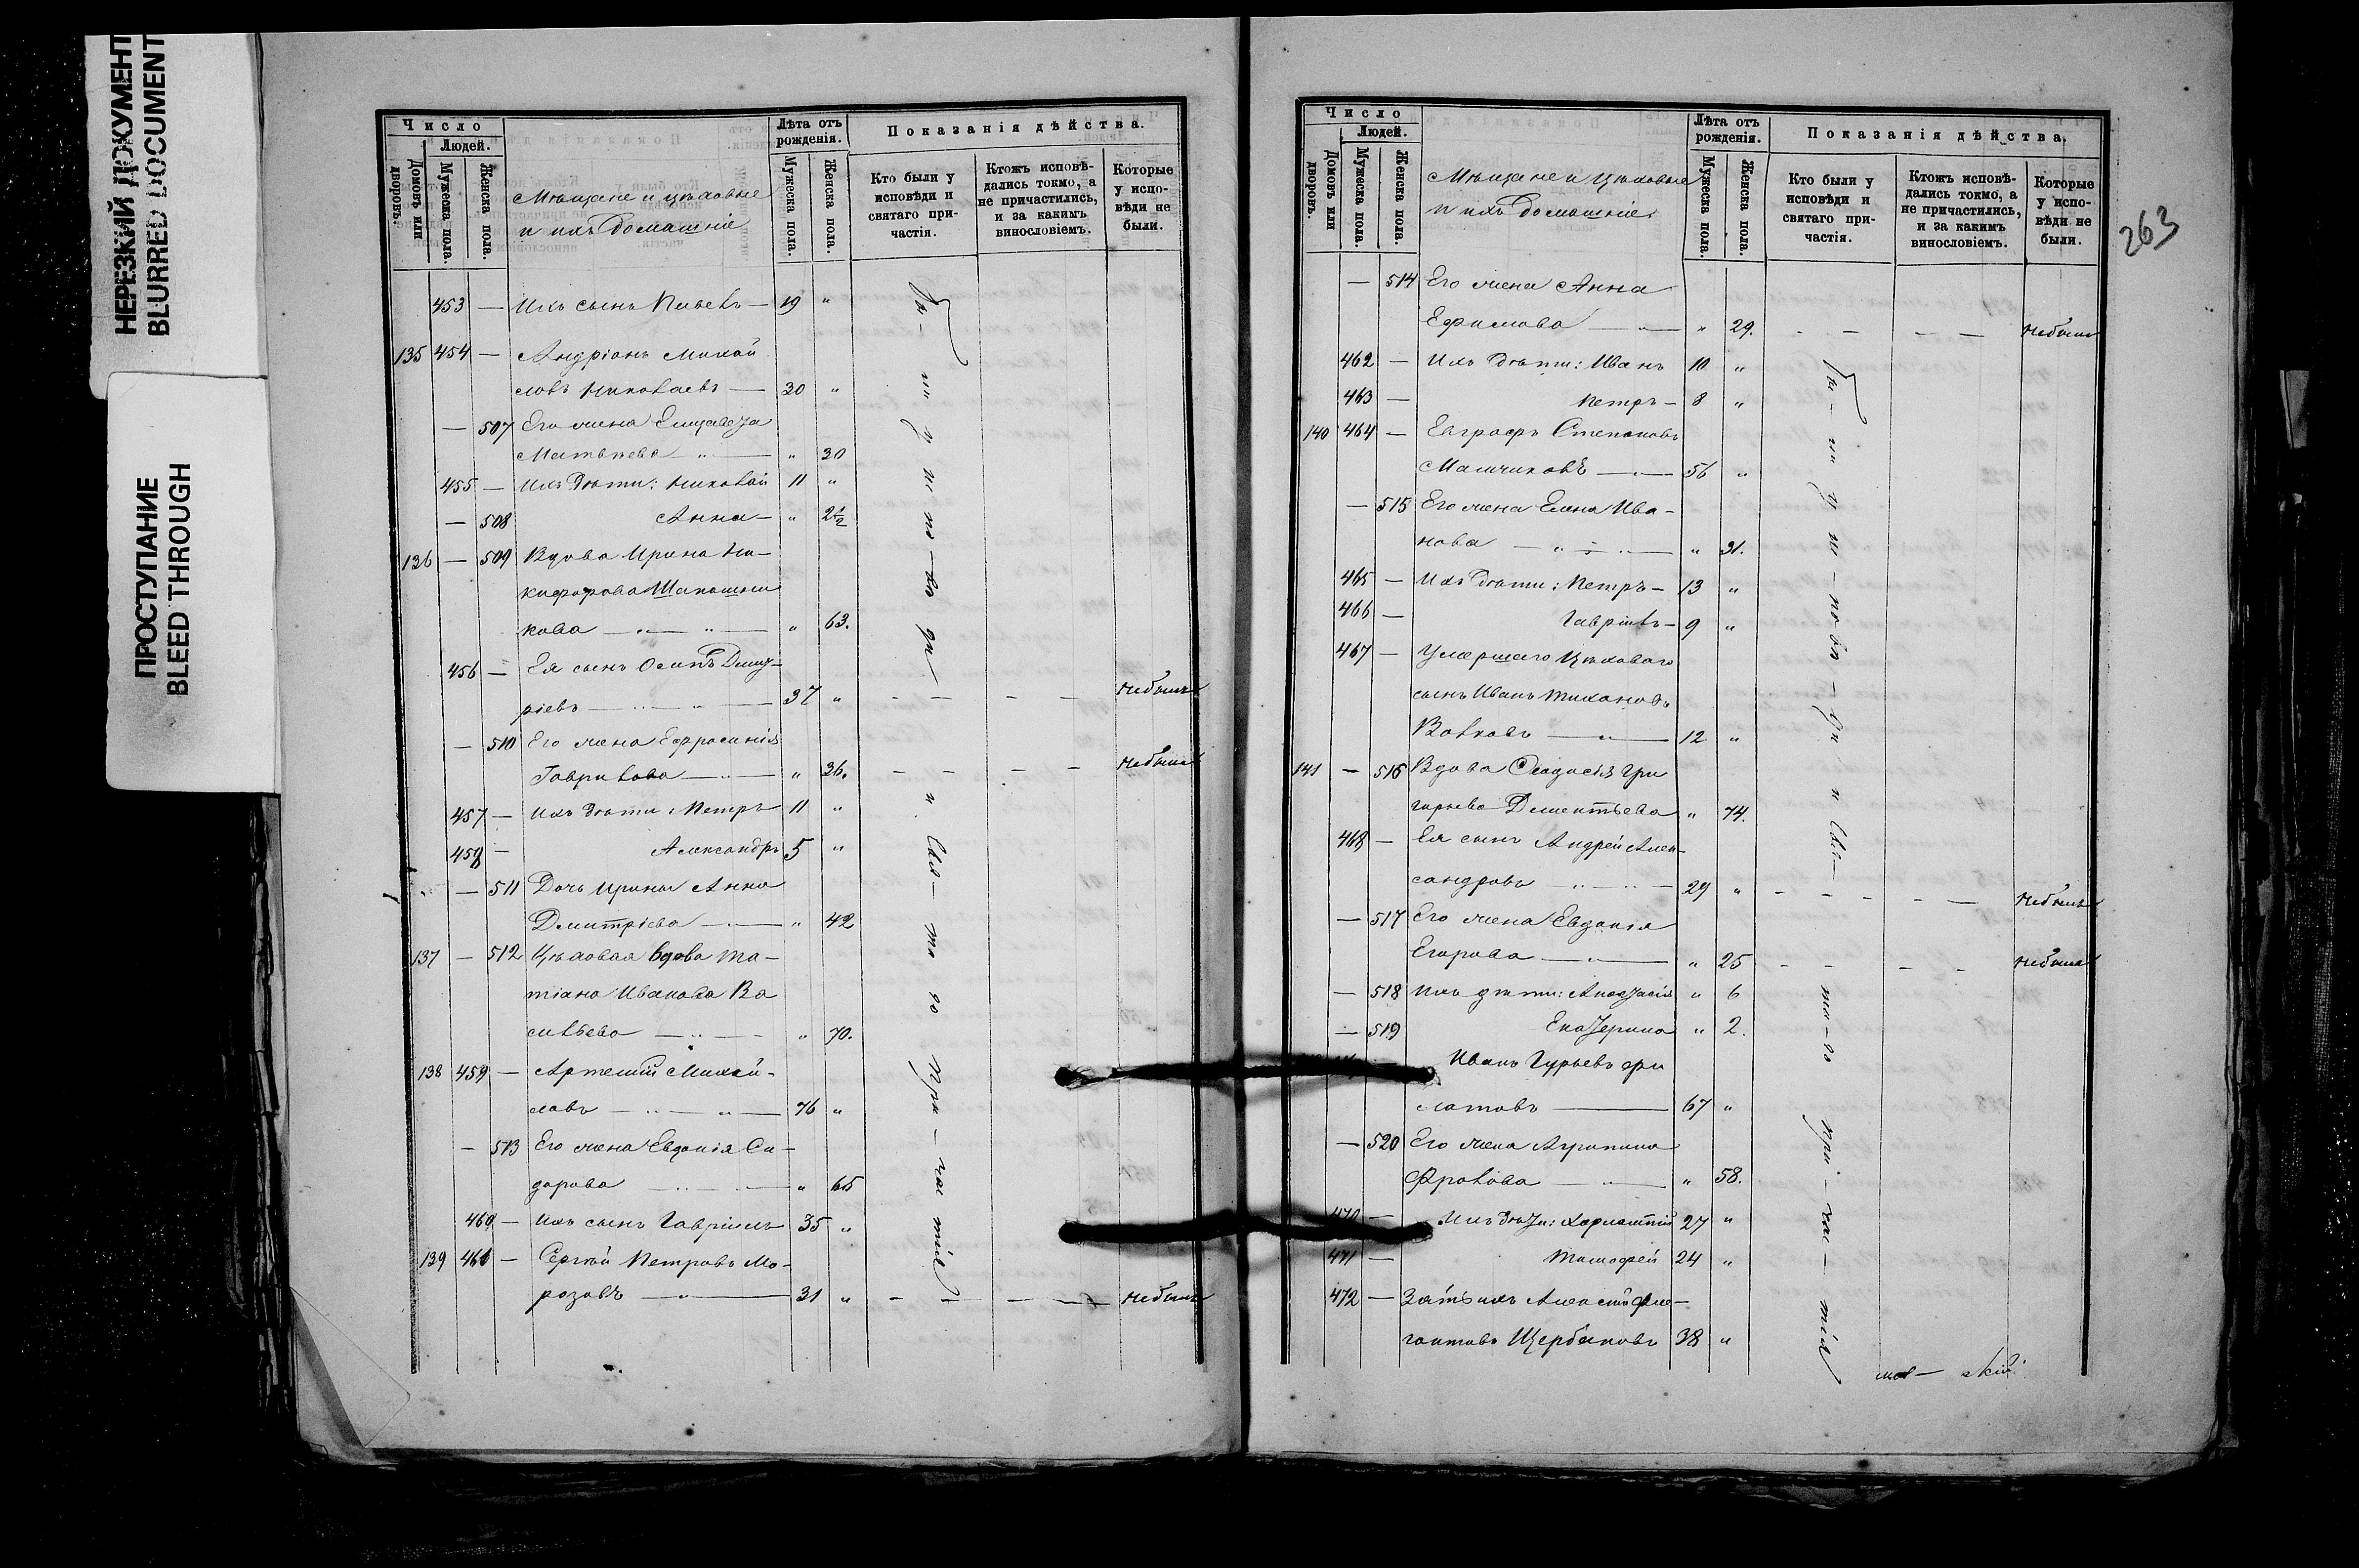 НЕРЕЗКИЙ ДОКУМЕНТ
BLURRED DOCUMENT
ПРОСТУПАНИЕ
BLEED THROUGH
Число
Людей.
Домовъ или дворовъ.
Мужеска пола.
Женска пола.
Мѣщане и цѣховые
и ихъ домашніе
Лѣта отъ рожденія.
Мужеска пола.
Женска пола.
Показанія дѣйства.
Кто были у исповѣди и святаго причастія.
Ктожъ исповѣ-
дались токмо, а
не причастились,
и за какимъ
винословіемъ.
Которые
у испо-
вѣди не
были.
453 — Ихъ сынъ Павелъ — 19 "
135 454 — Андріанъ Михай
ловъ Николаевъ — 30 "
— 507 Его жена Елисавета
Матвѣева — " — " 30
455 — Ихъ дѣти: Николай 11 "
— 508 Анна — " 2½
136 — 509 Вдова Ирина Ни-
кифорова Шапошни
кова — " — " 63.
456 — Ея сынъ Осипъ Дмит-
ріевъ — " — 37 " — — — — не былъ
— 510 Его жена Ефросинія
Гаврилова — " — " 36. — — — — не была
457 — Ихъ дѣти: Петръ 11 "
458 — Александръ 5 "
— 511 Дочь Ирины Анна
Дмитріева — " 42
137 — 512 Цѣховая вдова Та-
тіана Иванова Ва
сильева — " — " 70.
138 459 — Артемій Михай-
ловъ — " — " — 76 "
— 513 Его жена Евдокія Си-
дорова — " — " 65
460 — Ихъ сынъ Гавріилъ 35 "
139 461 — Сергѣй Петровъ Мо-
розовъ — " — 31 " — — — не былъ
263
Число
Людей.
Домовъ или дворовъ.
Мужеска пола.
Женска пола.
Мѣщане и цѣховые
и ихъ домашніе
Лѣта отъ рожденія.
Мужеска пола.
Женска пола.
Показанія дѣйства.
Кто были у исповѣди и святаго причастія.
Ктожъ исповѣ-
дались токмо, а
не причастились,
и за какимъ
винословіемъ.
Которые
у испо-
вѣди не
были.
— 514 Его жена Анна
Ефимова — " 29. — — — — не была
462 — Ихъ дѣти: Иванъ 10 "
463 — Петръ — 8 "
140 464 — Евграфъ Степановъ
— " — 56 "
— 515 Его жена Елена Ива-
нова — " — " 31.
465 — Ихъ дѣти: Петръ — 13 "
466 — Гавріилъ — 9 "
467 — Умершаго цѣховаго
сынъ Иванъ Тихановъ
Волковъ — " — 12 "
141 — 516 Вдова Феодосія Гри
горьева Дементьева " 74.
468 — Ея сынъ Андрей Алек-
сандровъ — " — 29 " — — — — не былъ
— 517 Его жена Евдокія
Егорова — " — " 25 — — — — не была
— 518 Ихъ дѣти: Анастасія " 6
— 519 Екатерина " 2.
Иванъ Гурьевъ Фи
латовъ — 67 "
— 520 Его жена Агрипина
Фролова — " — " 58.
470 — Ихъ дѣти: 27 "
471 — Тимофей 24 "
472 — Зять ихъ Алексѣй
Щербаковъ 38 "